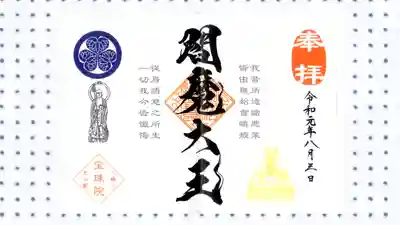 奉拝
令和元年八月三日
我昔所造諸悪業
皆由無始貪瞋癡
閻魔大王
從身語意之所生
一切我今皆懺悔
宝珠院